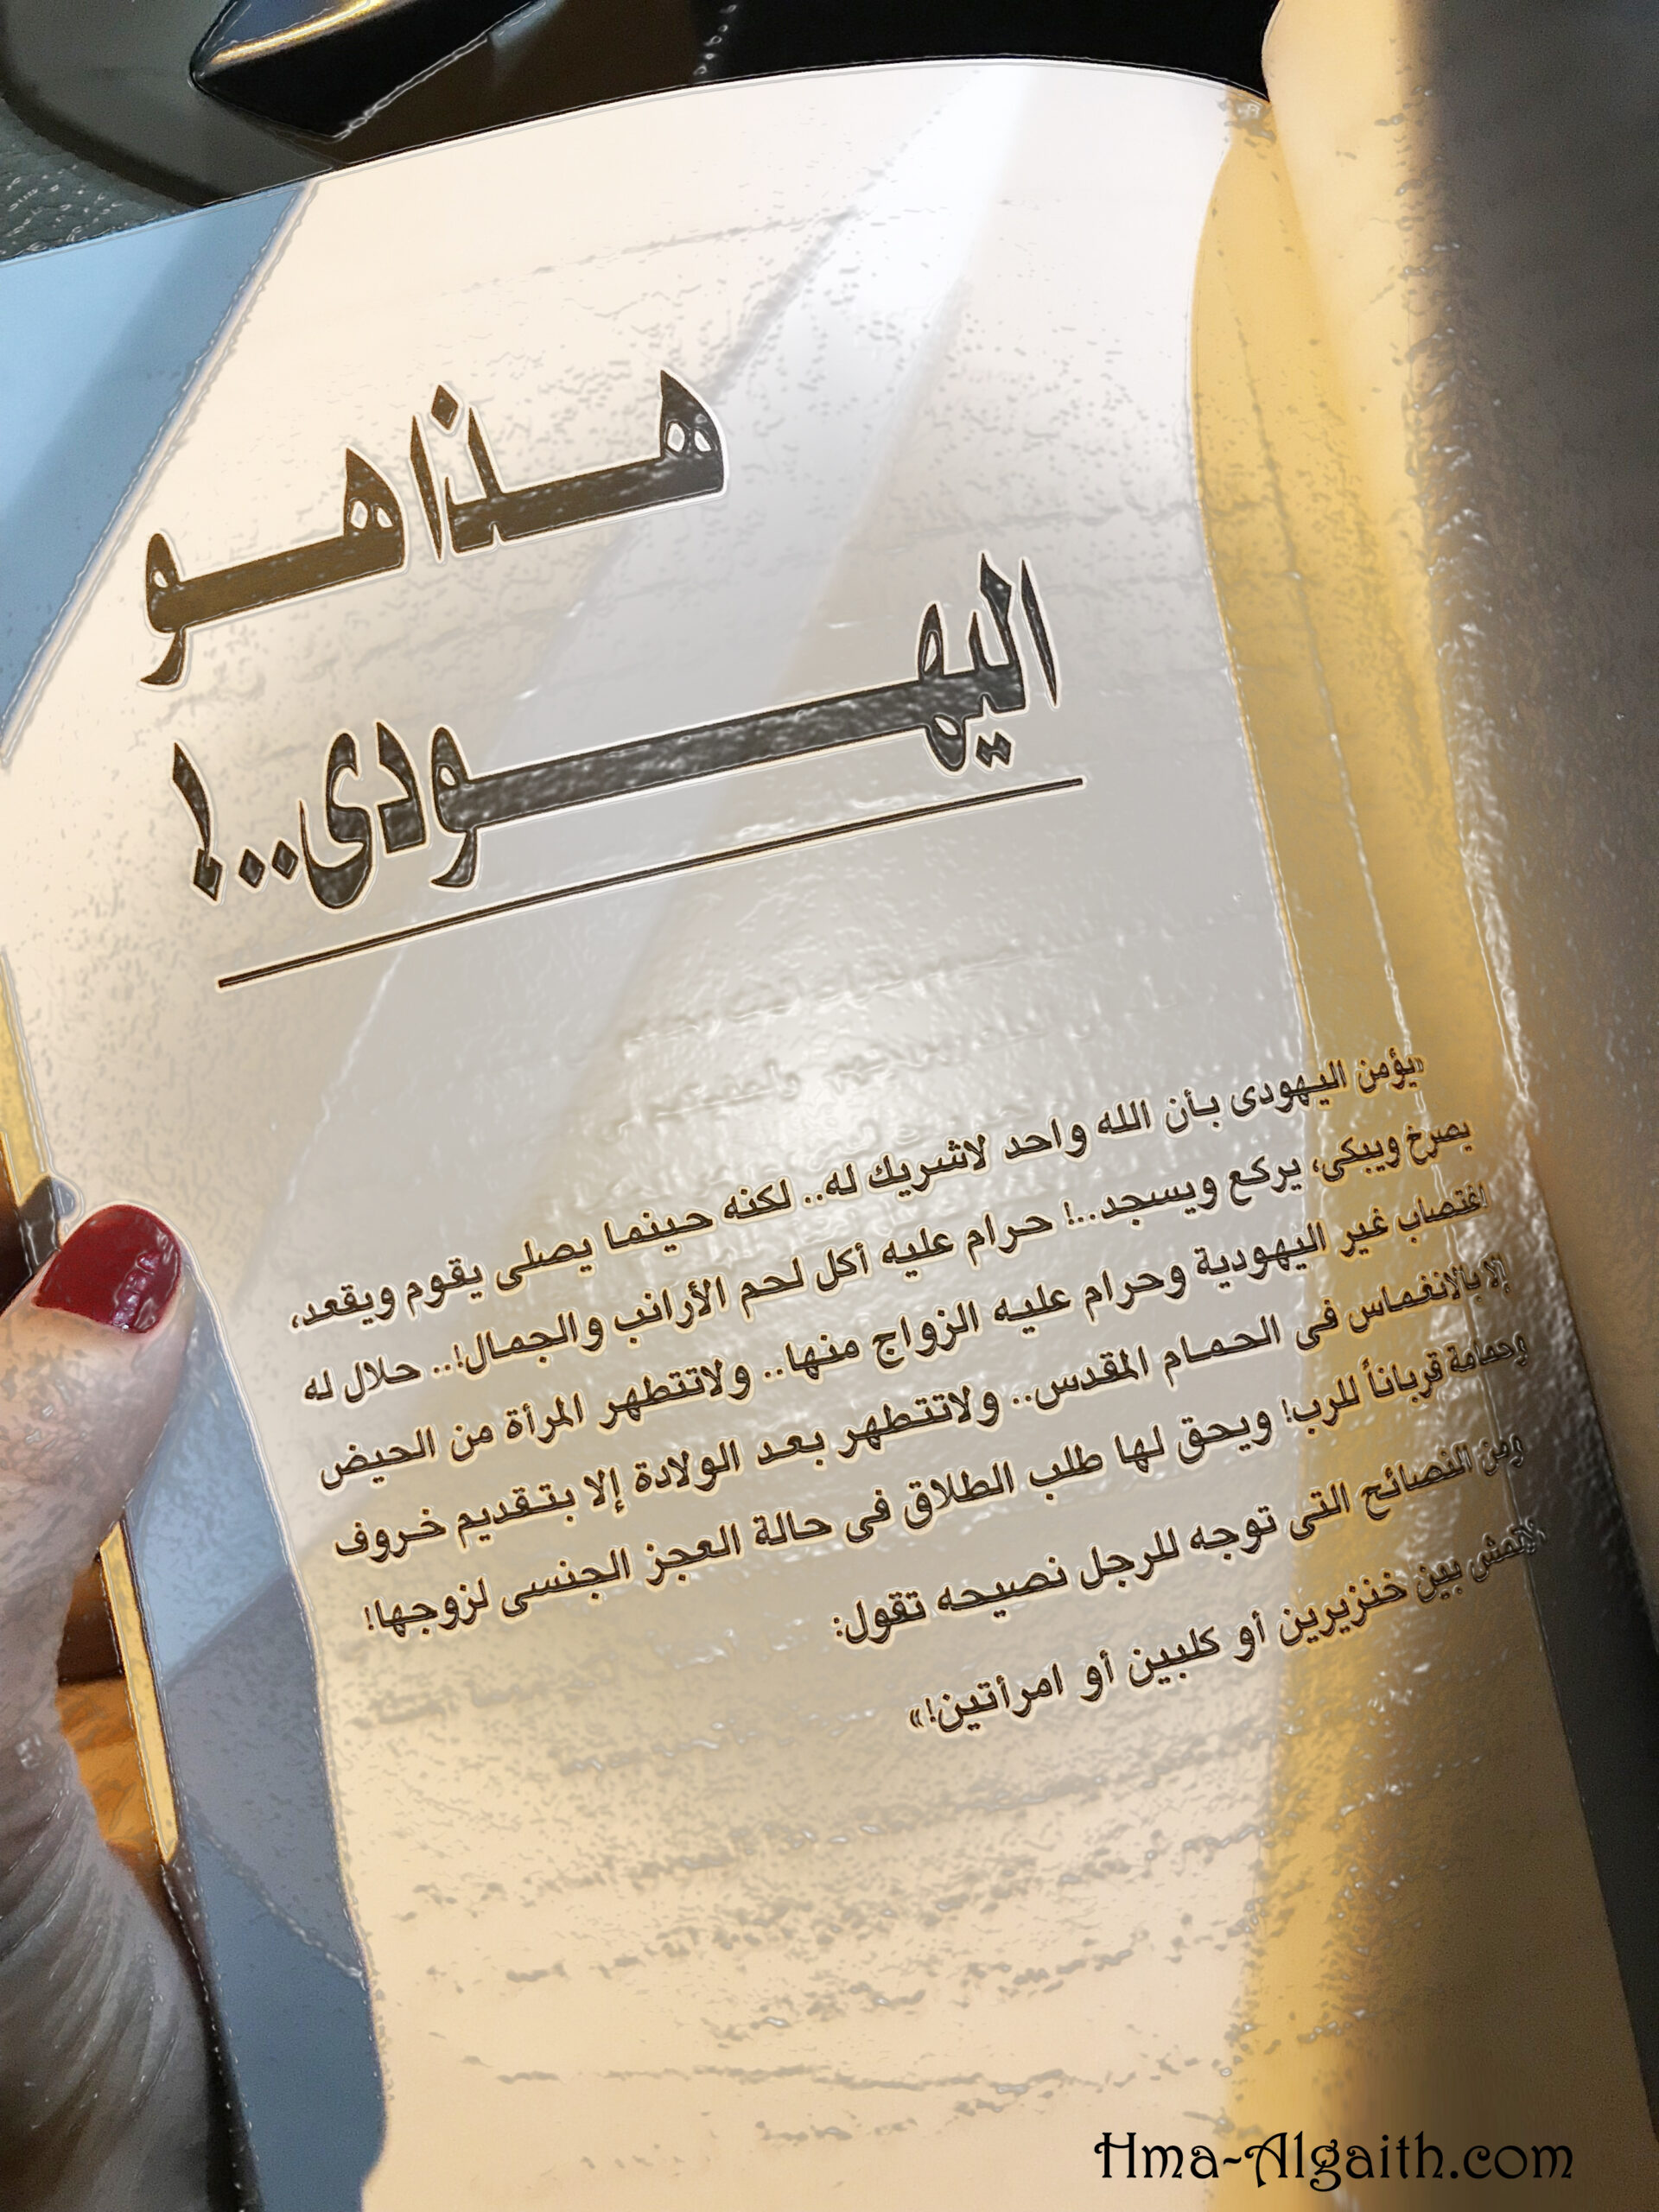 هـذا هـو
اليهـودى..!
«يؤمن اليهودى بأن الله واحد لاشريك له.. لكنه حينما يصلى يقوم ويقعد،
يصرخ ويبكى، يركع ويسجد..! حرام عليه أكل لحم الأرانب والجمال!.. حلال له
اغتصاب غير اليهودية وحرام عليه الزواج منها.. ولاتتطهر المرأة من الحيض
إلا بالإنغماس فى الحمام المقدس.. ولاتتطهر بعد الولادة إلا بتقديم خروف
وحمامة قرباناً للرب! ويحق لها طلب الطلاق فى حالة العجز الجنسى لزوجها!
ومن النصائح التى توجه للرجل نصيحه تقول:
لاتمش بين خنزيرين أو كلبين أو امرأتين!»
Hma-Algaith.com